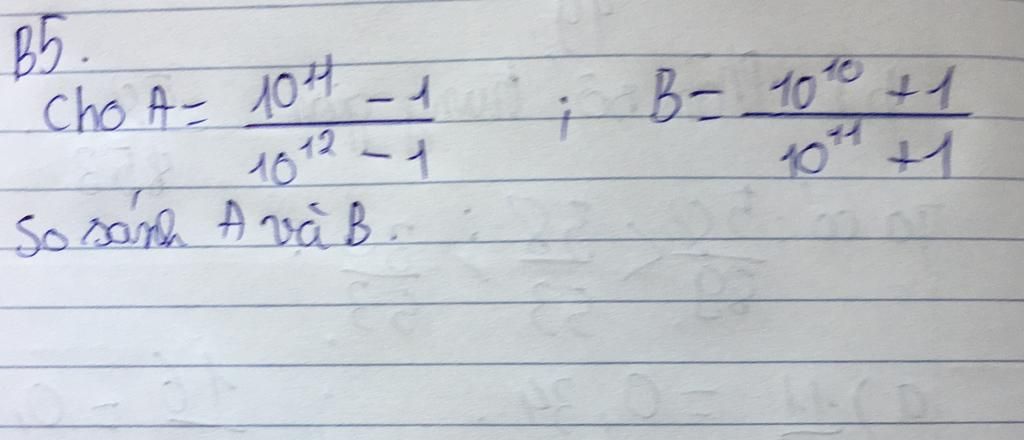 B5.
Cho A = (10^11 - 1)/(10^12 - 1) ; B = (10^10 + 1)/(10^11 + 1)
So sánh A và B.